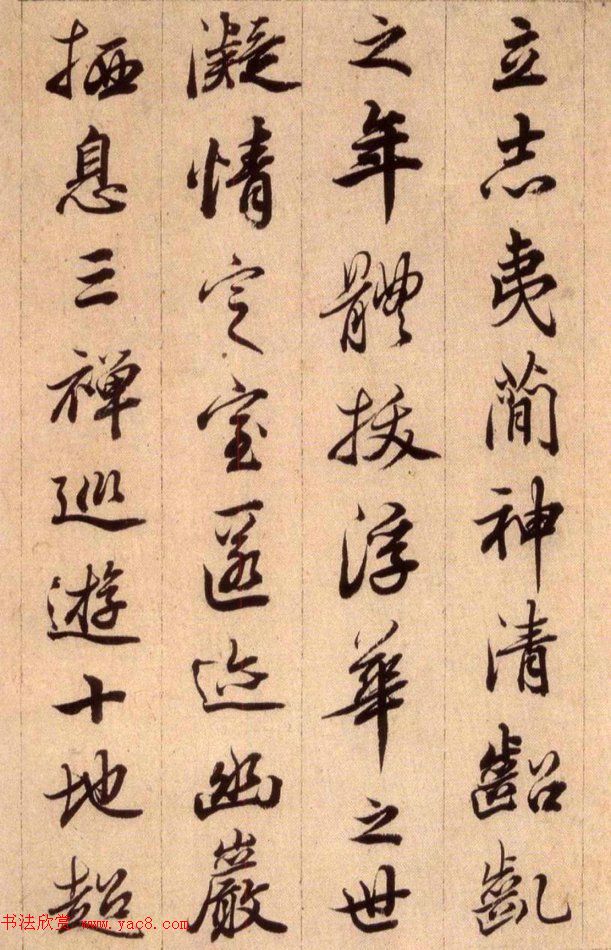 立志夷簡神清齠齔
之年體拔浮華之世
凝情定室匿迹幽巖
栖息三禪巡遊十地超
书法欣赏 www.yac8.com